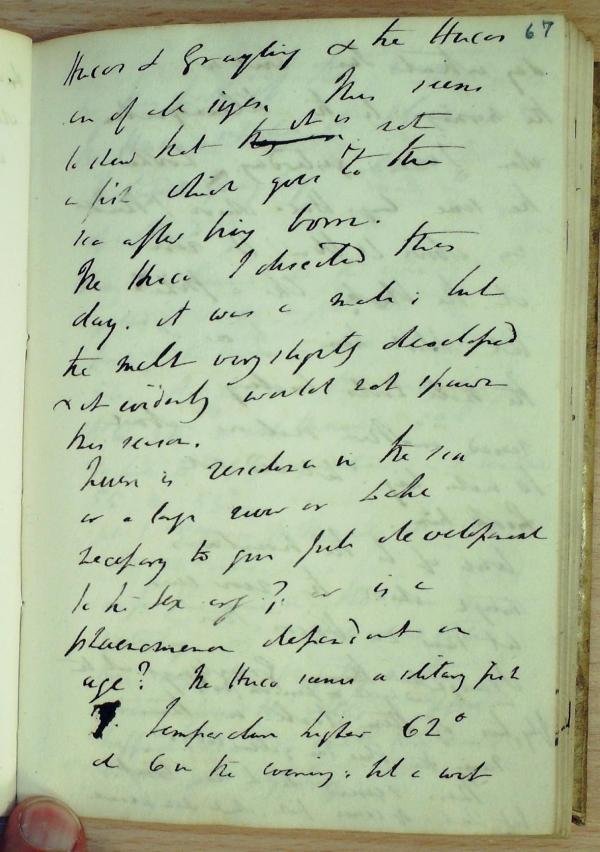 67
Hucos & Grayling & the Hucos
are of all sizes. This seems
to shew that they it is not
a fish which goes to the
sea after being born.
The Huco I dissected this
day. it was a male; but
the melt very slightly developed
& it evidently would not spawn
this season.
is residence in the sea
or a large river or Lake
necessary to give full development
to the sex org? or is it a
phaenomenon dependent on
age? The Huco seems a solitary fish
Temperature higher 62°
at 6 in the evening: but a